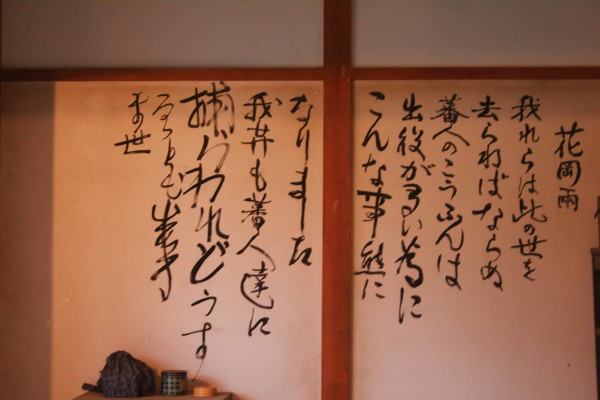 花岡兩
我れらは此の世を
去らねばならぬ
蕃人のこうふんは
出役が多い為に
こんな事件に
なりました
我等も蕃人達に
捕らわれどうす
ることも出来
ま世